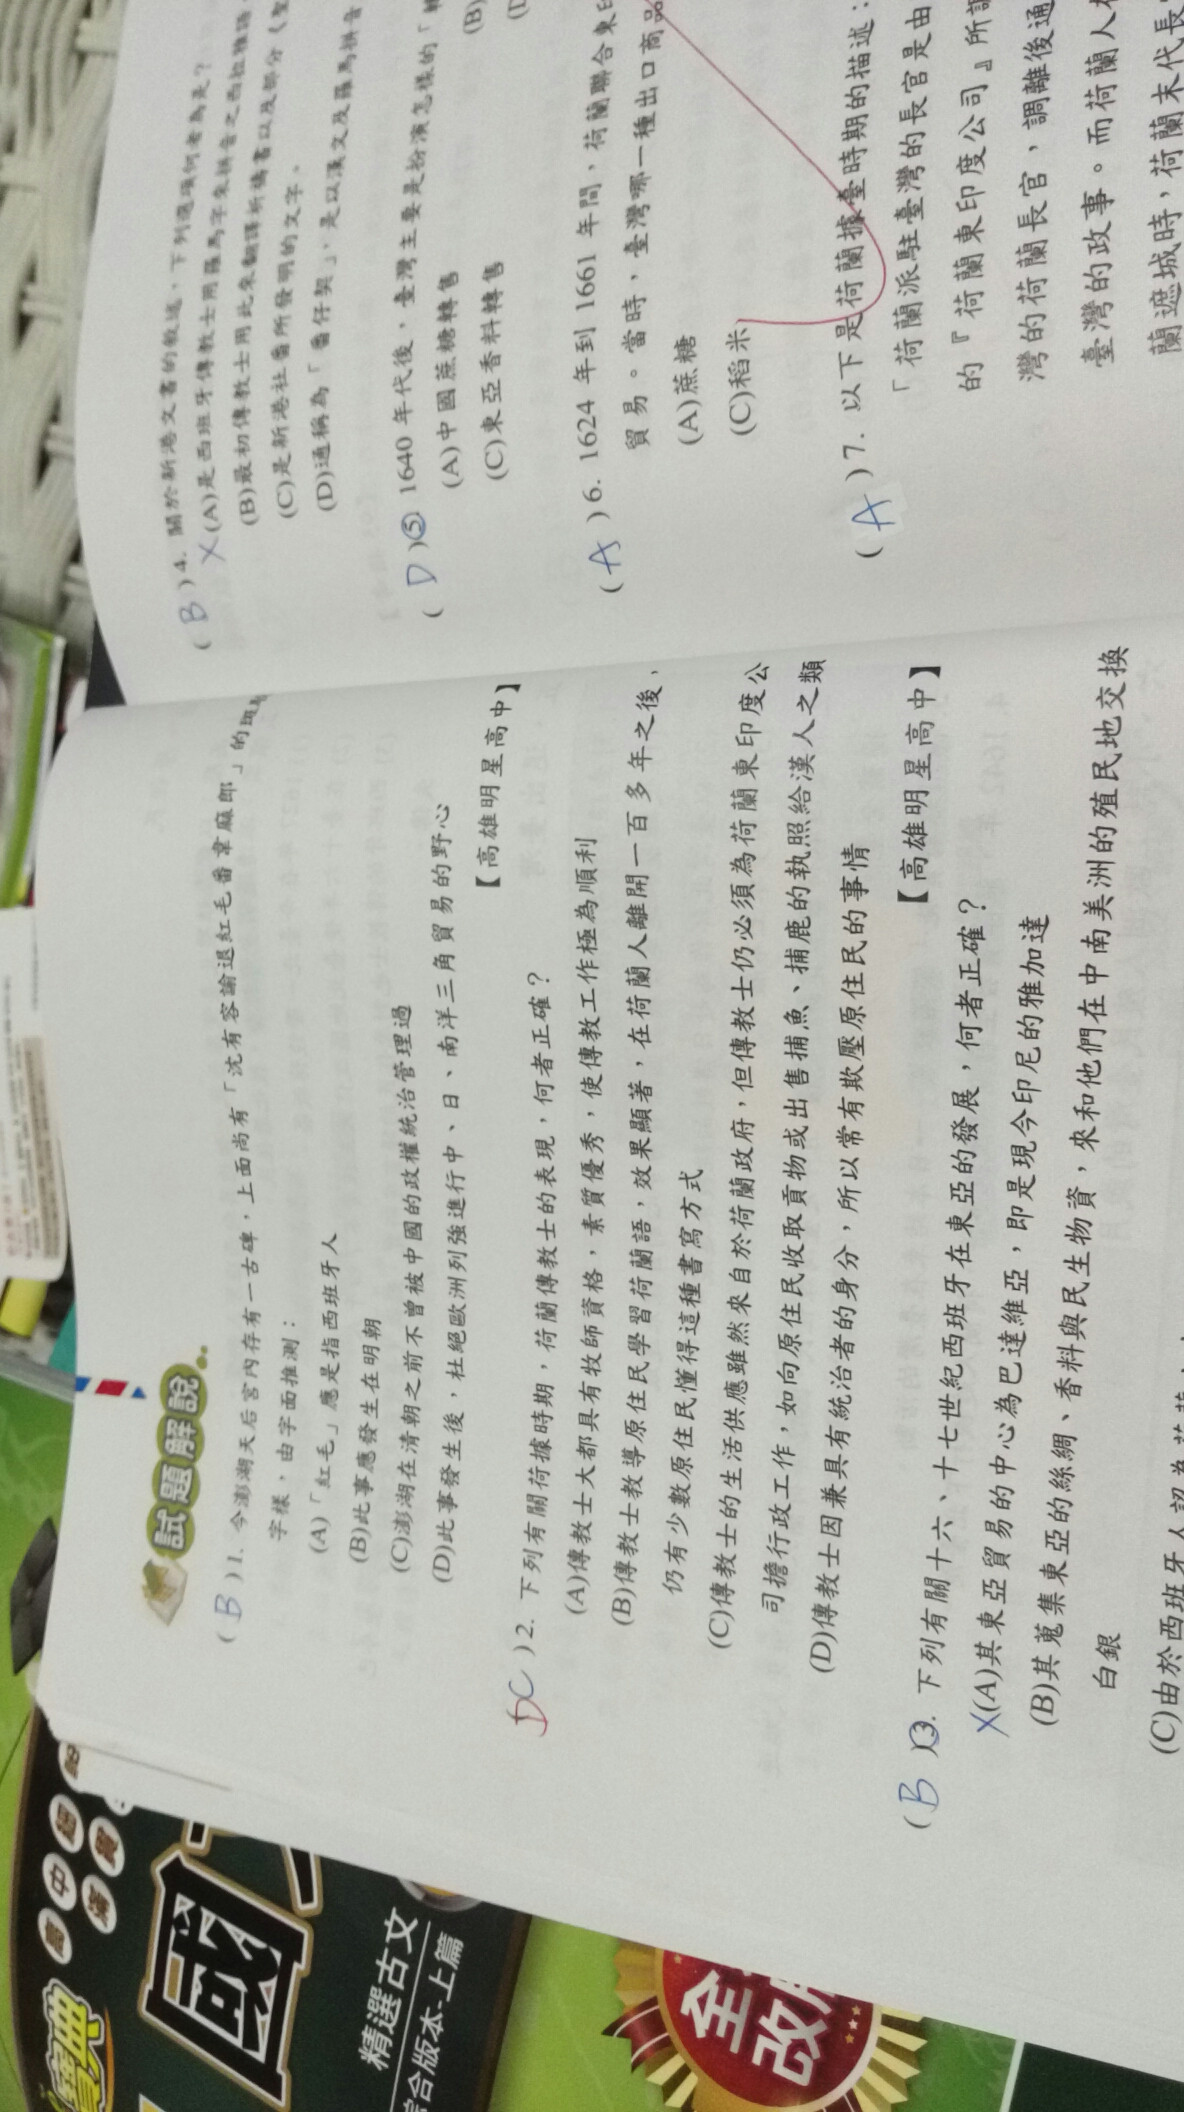 試題解說
( B )1. 今澎湖天后宮內存有一古碑，上面尚有「沈有容諭退紅毛番韋麻郎」的
字樣，由字面推測：
(A)「紅毛」應是指西班牙人
(B)此事應發生在明朝
(C)澎湖在清朝之前不曾被中國的政權統治管理過
(D)此事發生後，杜絕歐洲列強進行中、日、南洋三角貿易的野心
【高雄明星高中】
DC )2. 下列有關荷據時期，荷蘭傳教士的表現，何者正確？
(A)傳教士大都具有牧師資格，素質優秀，使傳教工作極為順利
(B)傳教士教導原住民學習荷蘭語，效果顯著，在荷蘭人離開一百多年之後，
仍有少數原住民懂得這種書寫方式
(C)傳教士的生活供應雖然來自於荷蘭政府，但傳教士仍必須為荷蘭東印度公
司擔行政工作，如向原住民收取貢物或出售捕魚、捕鹿的執照給漢人之類
(D)傳教士因兼具有統治者的身分，所以常有欺壓原住民的事情
【高雄明星高中】
( B )3. 下列有關十六、十七世紀西班牙在東亞的發展，何者正確？
X(A)其東亞貿易的中心為巴達維亞，即是現今印尼的雅加達
(B)其蒐集東亞的絲綢、香料與民生物資，來和他們在中南美洲的殖民地交換
白銀
(C)由於西班牙人認為
( B )4. 關於新港文書的敘述，下列選項何者為是？
X(A)是西班牙傳教士用羅馬字來拼音之西拉雅語
(B)最初傳教士用此來翻譯祈禱書以及部分《聖
(C)是新港社番所發明的文字。
(D)通稱為「番仔契」，是以漢文及羅馬拼音
( D )5 1640 年代後，臺灣主要是扮演怎樣的「轉
(A)中國蔗糖轉售
(B)
(C)東亞香料轉售
( A )6. 1624 年到 1661 年間，荷蘭聯合東印
貿易。當時，臺灣哪一種出口商品
(A)蔗糖
(C)稻米
( A )7. 以下是荷蘭據臺時期的描述：
「荷蘭派駐臺灣的長官是由
的『荷蘭東印度公司』所
灣的荷蘭長官，調離後通
臺灣的政事。而荷蘭人
蘭遮城時，荷蘭末代長
寶典
高中
國
精選古文
綜合版本-上篇
全
改版